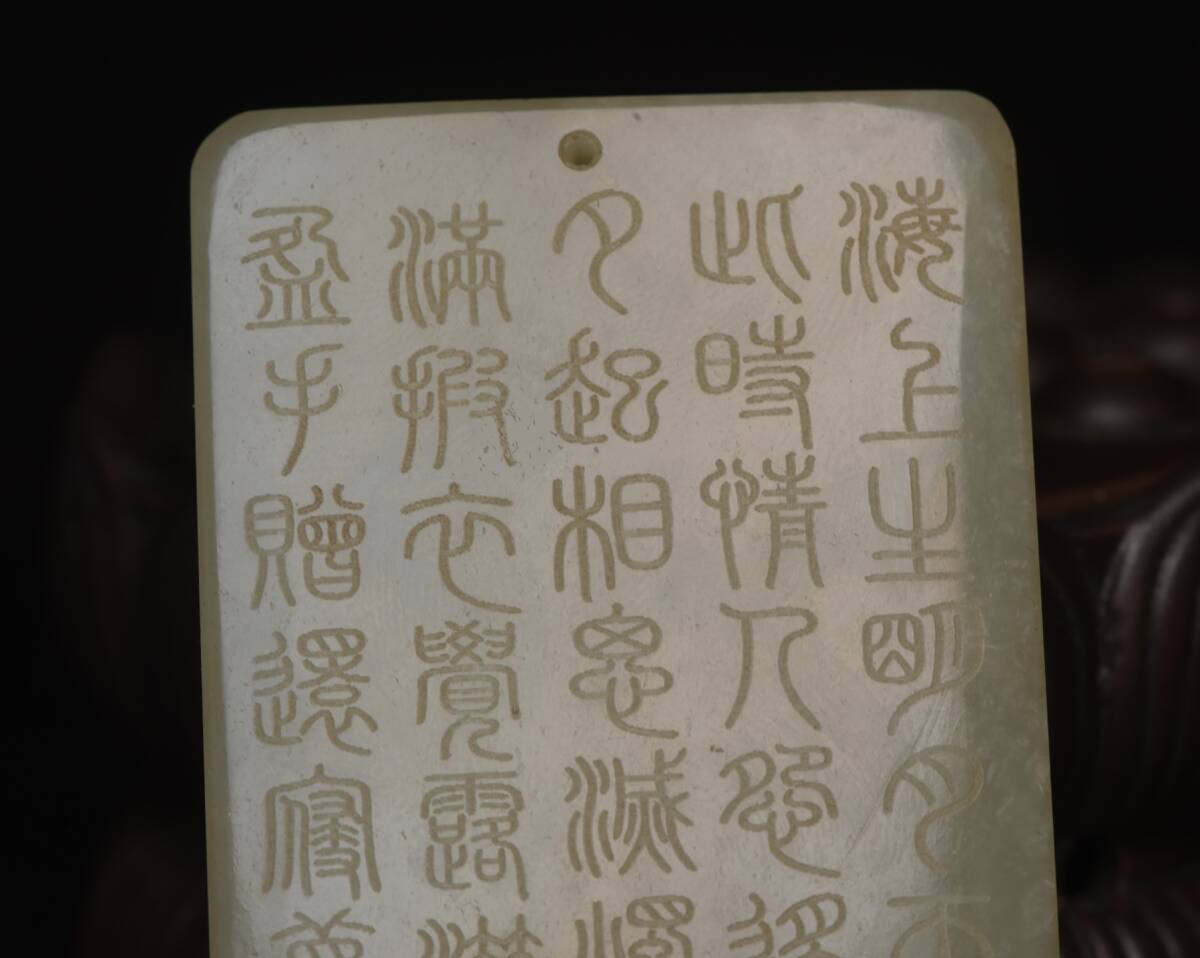 海上生明月
此時情人怨
夕起相思滅
滿披衣覺露
盈手贈還寢